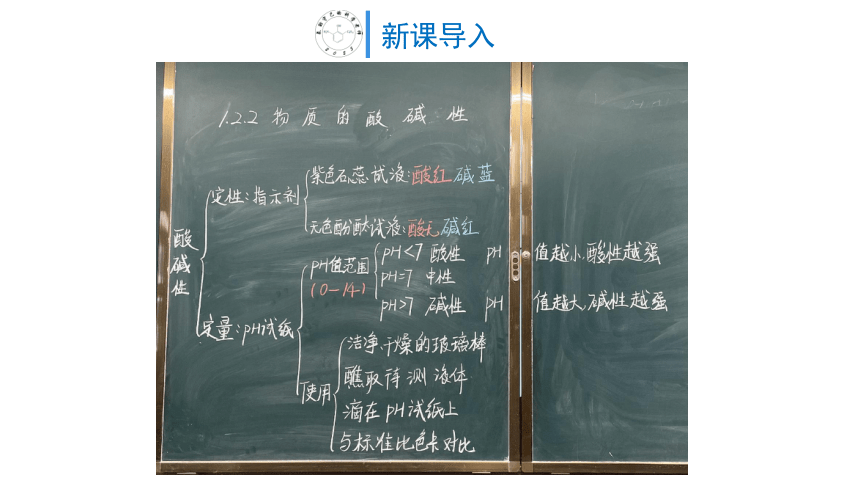 新课导入
1.2.2 物质的酸碱性
酸碱性
定性:指示剂
紫色石蕊试液:酸红 碱蓝
无色酚酞试液:酸无 碱红
定量:pH试纸
pH值范围
(0-14)
pH<7 酸性 pH值越小,酸性越强
pH=7 中性
pH>7 碱性 pH值越大,碱性越强
使用
洁净、干燥的玻璃棒
蘸取待测液体
滴在pH试纸上
与标准比色卡对比